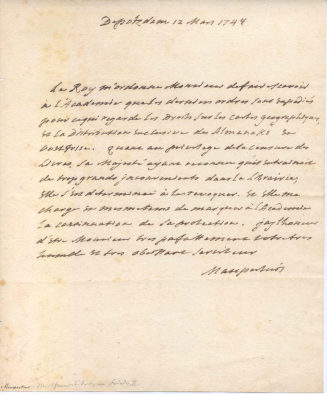 De potzdam 12 Mars 1748
Le Roy m'ordonne Monsieur de faire scavoir
à l'Academie que les derniers ordres sont expediés
pour ce qui regarde les Droits sur les cartes geographiques,
et la Distribution exclusive des Almanaks en
Oostfrise. quant au privilege de la censure des
Livres, Sa Majesté ayant reconnu quil entrainoit
de trop grands inconvenients dans la Librairie,
Elle s'est determinée à le revoquer. et Elle me
charge en meme tems de marquer à l'Academie
la continuation de sa protection. jay l'honneur
d'etre Monsieur tres parfaitement votre tres
humble et tres obeissant serviteur
Maupertuis